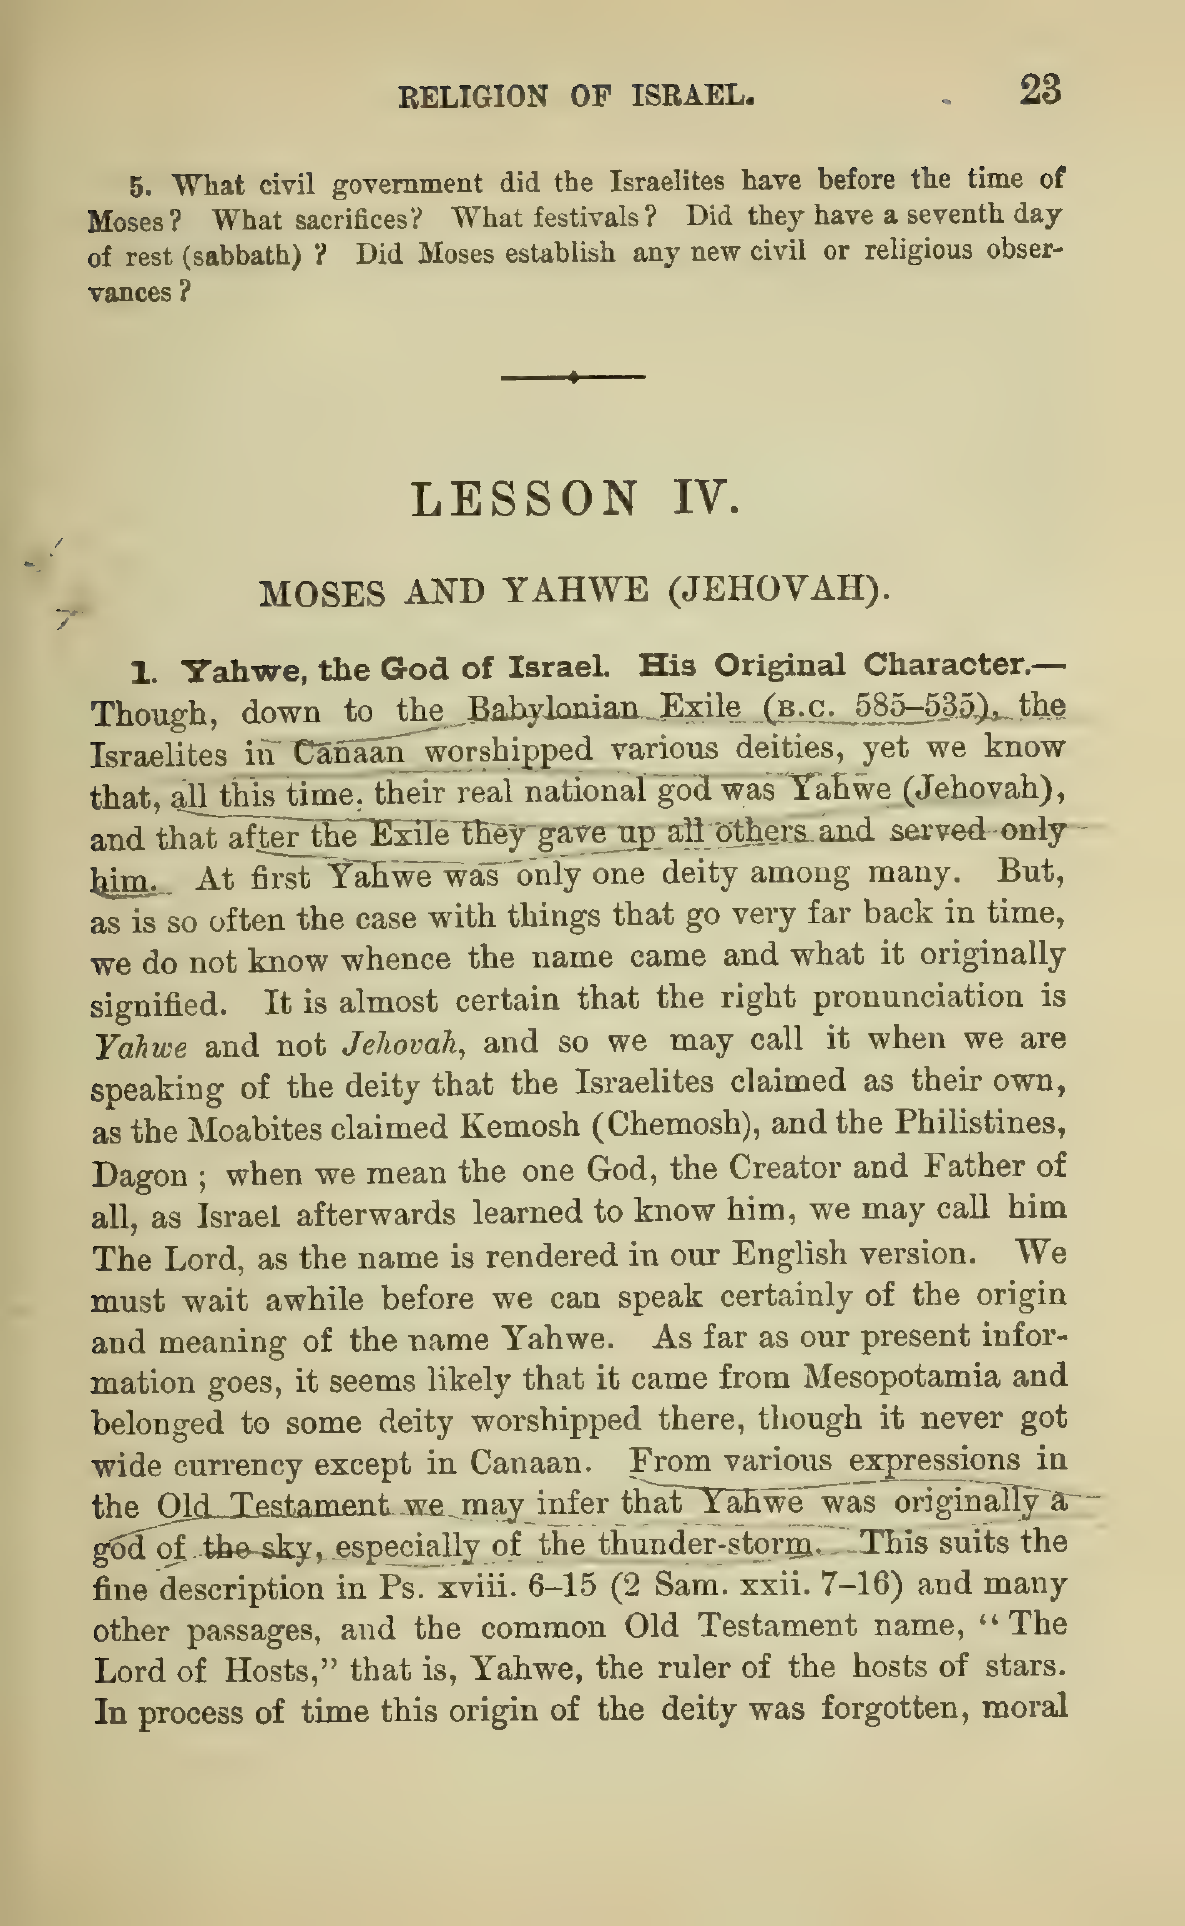 RELIGION OF ISRAEL. 23
5. What civil government did the Israelites have before the time of
Moses? What sacrifices? What festivals? Did they have a seventh day
of rest (sabbath)? Did Moses establish any new civil or religious obser-
vances?
LESSON IV.
MOSES AND YAHWE (JEHOVAH).
1. Yahwe, the God of Israel. His Original Character.—
Though, down to the Babylonian Exile (B.C. 585–535), the
Israelites in Canaan worshipped various deities, yet we know
that, all this time, their real national god was Yahwe (Jehovah),
and that after the Exile they gave up all others and served only
him. At first Yahwe was only one deity among many. But,
as is so often the case with things that go very far back in time,
we do not know whence the name came and what it originally
signified. It is almost certain that the right pronunciation is
Yahwe and not Jehovah, and so we may call it when we are
speaking of the deity that the Israelites claimed as their own,
as the Moabites claimed Kemosh (Chemosh), and the Philistines,
Dagon; when we mean the one God, the Creator and Father of
all, as Israel afterwards learned to know him, we may call him
The Lord, as the name is rendered in our English version. We
must wait awhile before we can speak certainly of the origin
and meaning of the name Yahwe. As far as our present infor-
mation goes, it seems likely that it came from Mesopotamia and
belonged to some deity worshipped there, though it never got
wide currency except in Canaan. From various expressions in
the Old Testament we may infer that Yahwe was originally a
god of the sky, especially of the thunder-storm. This suits the
fine description in Ps. xviii. 6–15 (2 Sam. xxii. 7–16) and many
other passages, and the common Old Testament name, “The
Lord of Hosts,” that is, Yahwe, the ruler of the hosts of stars.
In process of time this origin of the deity was forgotten, moral